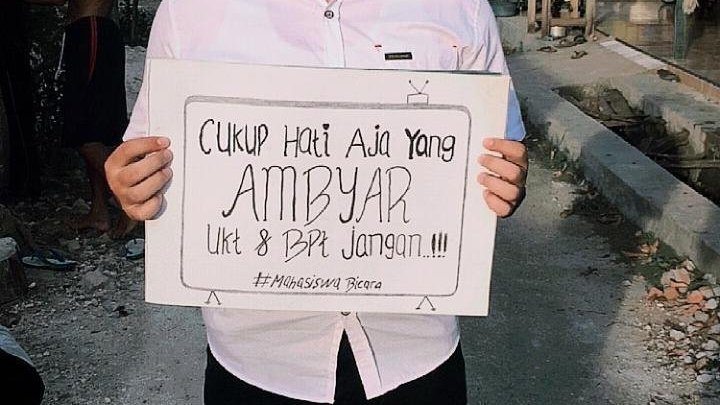 CUKUP Hati AJa Yang
AMBYAR
Ukt & BPt Jangan..!!!
#Mahasiswa Bicara